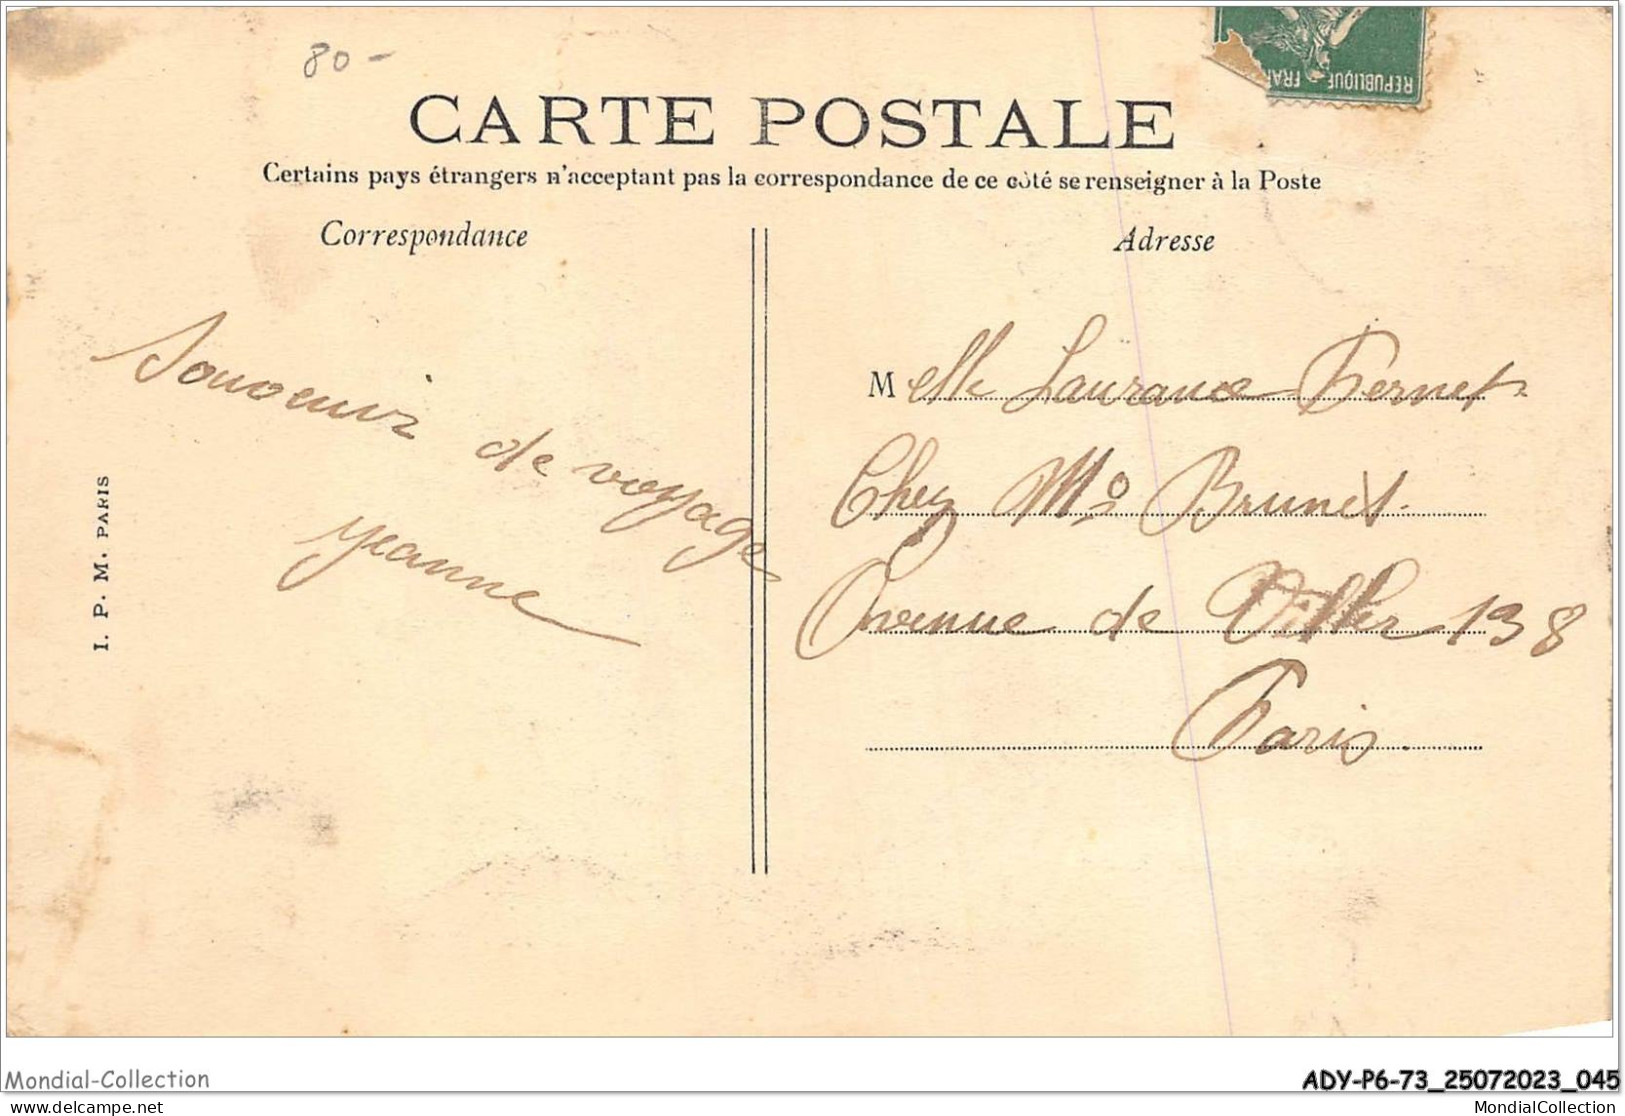 80 -
REPUBLIQUE FRAN
CARTE POSTALE
Certains pays étrangers n'acceptant pas la correspondance de ce côté se renseigner à la Poste
Correspondance
Adresse
Souvenir
de voyage
Jeanne
Melle Laurance Fernet
Chez Mo Brunet.
Avenue de Villier 138
Paris.
I. P. M. PARIS
Mondial-Collection
ADY-P6-73_25072023_045
delcampe.net
MondialCollection